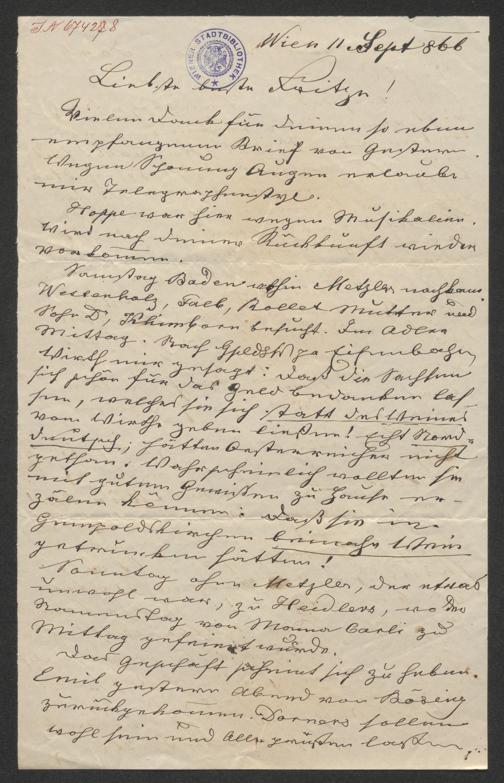 IN 67428
WIENER STADTBIBLIOTHEK
Wien 11. Sept 866
Liebste beste Fritze!
Vielen Dank für Deinen so eben
empfangenen Brief von Gestern.
Wegen Schonung Augen erlaube
mir Telegraphenstyl.
Hoppe war hier wegen Musikalien.
Wird nach Deiner Rückkunft wieder
vorkommen.
Samstag Baden Metzler
Falb, Rollet Mutter und
Sohn Dr, besucht. Im Adler
Mittag. Nach per Eisenbahn,
Wirth mir gesagt: daß die Sachsen
sich schön für das Geld bedanken las-
sen, welches sie sich statt des Weines
vom Wirthe geben ließen! Echt Nord-
deutsch; hätten Oesterreicher nicht
gethan. Wahrscheinlich wollten sie
mit gutem Gewissen zu Hause er-
zälen können: daß sie in
Gumpoldskirchen beinahe Wein
getrunken hätten!
Sonntag ohne Metzler, der etwas
unwohl war, zu Heidlers, wo der
Namenstag von Mama Carli zu
Mittag gefeiert wurde.
Das Geschäft scheint sich zu heben.
Emil gestern Abend von Bösing
zurückgekommen. Dorners sollen
wohl sein und Alle grüßen lassen,